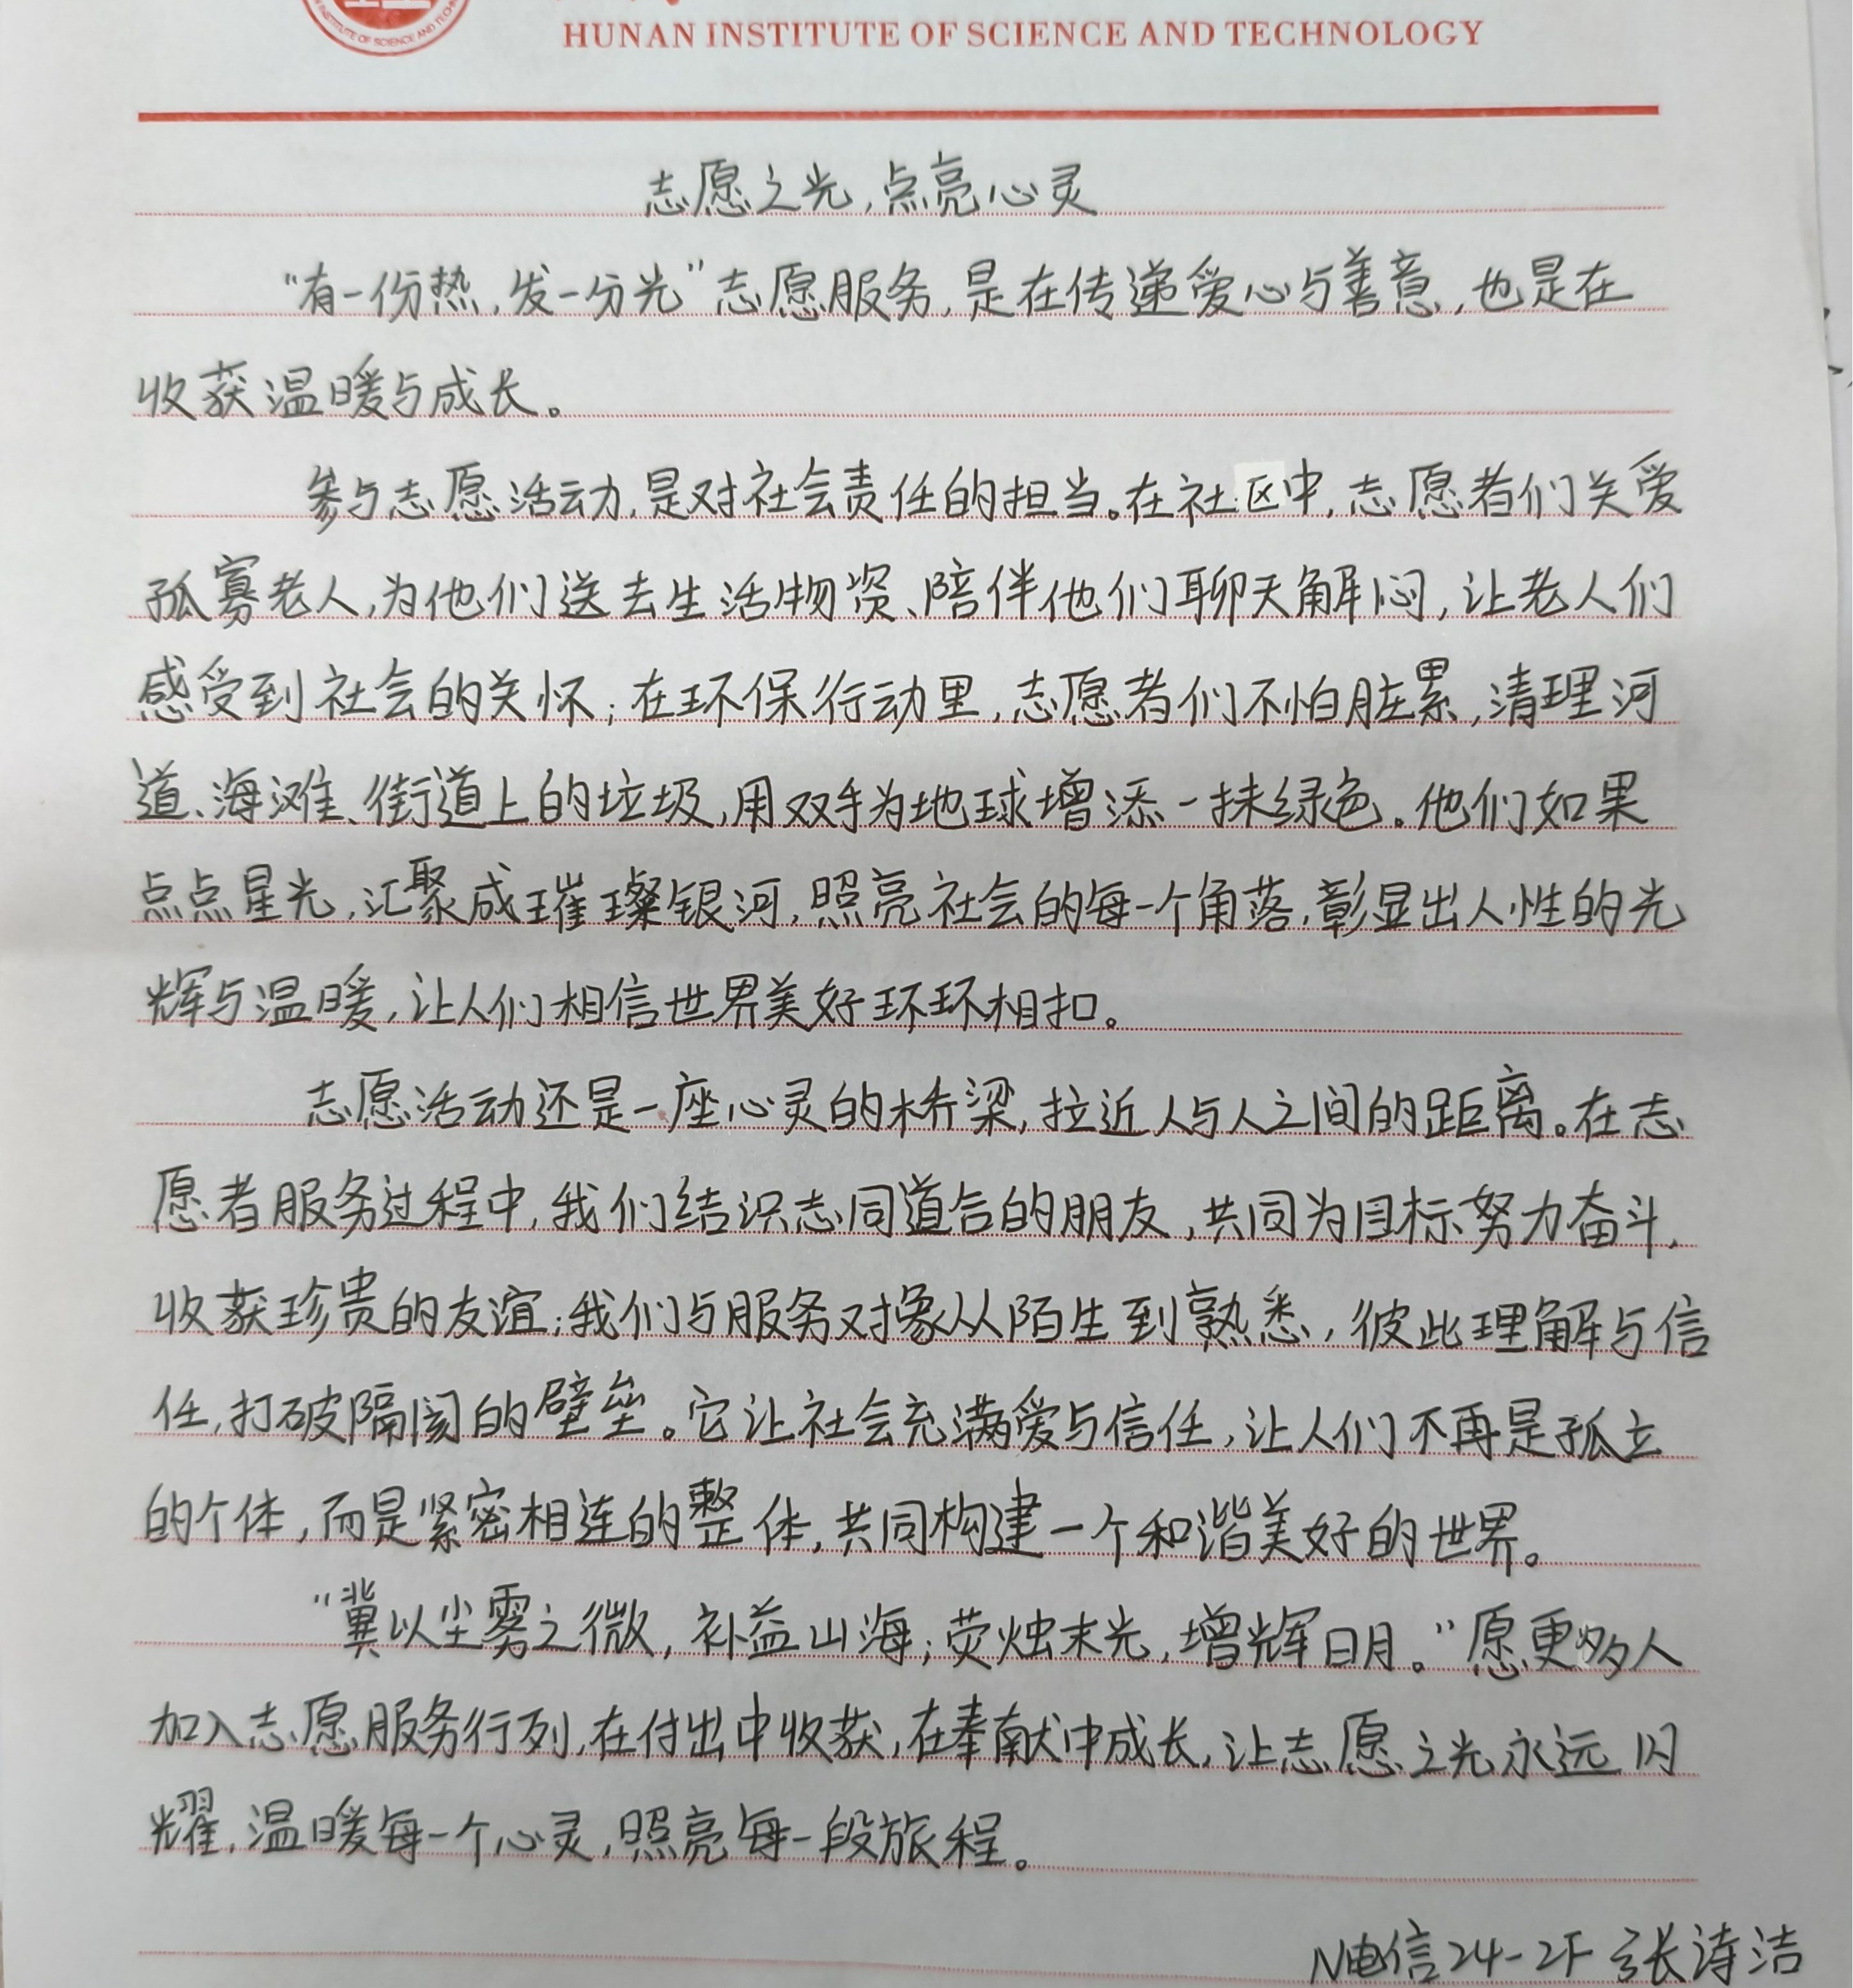 HUNAN INSTITUTE OF SCIENCE AND TECHNOLOGY
志愿之光，点亮心灵
“有一份热，发一分光”志愿服务，是在传递爱心与善意，也是在
收获温暖与成长。
参与志愿活动，是对社会责任的担当。在社区中，志愿者们关爱
孤寡老人，为他们送去生活物资、陪伴他们聊天解闷，让老人们
感受到社会的关怀；在环保行动里，志愿者们不怕脏累，清理河
道、海滩、街道上的垃圾，用双手为地球增添一抹绿色。他们如果
点点星光，汇聚成璀璨银河，照亮社会的每一个角落，彰显出人性的光
辉与温暖，让人们相信世界美好环环相扣。
志愿活动还是一座心灵的桥梁，拉近人与人之间的距离。在志
愿者服务过程中，我们结识志同道合的朋友，共同为目标努力奋斗，
收获珍贵的友谊；我们与服务对象从陌生到熟悉，彼此理解与信
任，打破隔阂的壁垒。它让社会充满爱与信任，让人们不再是孤立
的个体，而是紧密相连的整体，共同构建一个和谐美好的世界。
“冀以尘雾之微，补益山海；荧烛末光，增辉日月。”愿更多人
加入志愿服务行列，在付出中收获，在奉献中成长，让志愿之光永远闪
耀，温暖每一个心灵，照亮每一段旅程。
N电信24-2F 张诗洁